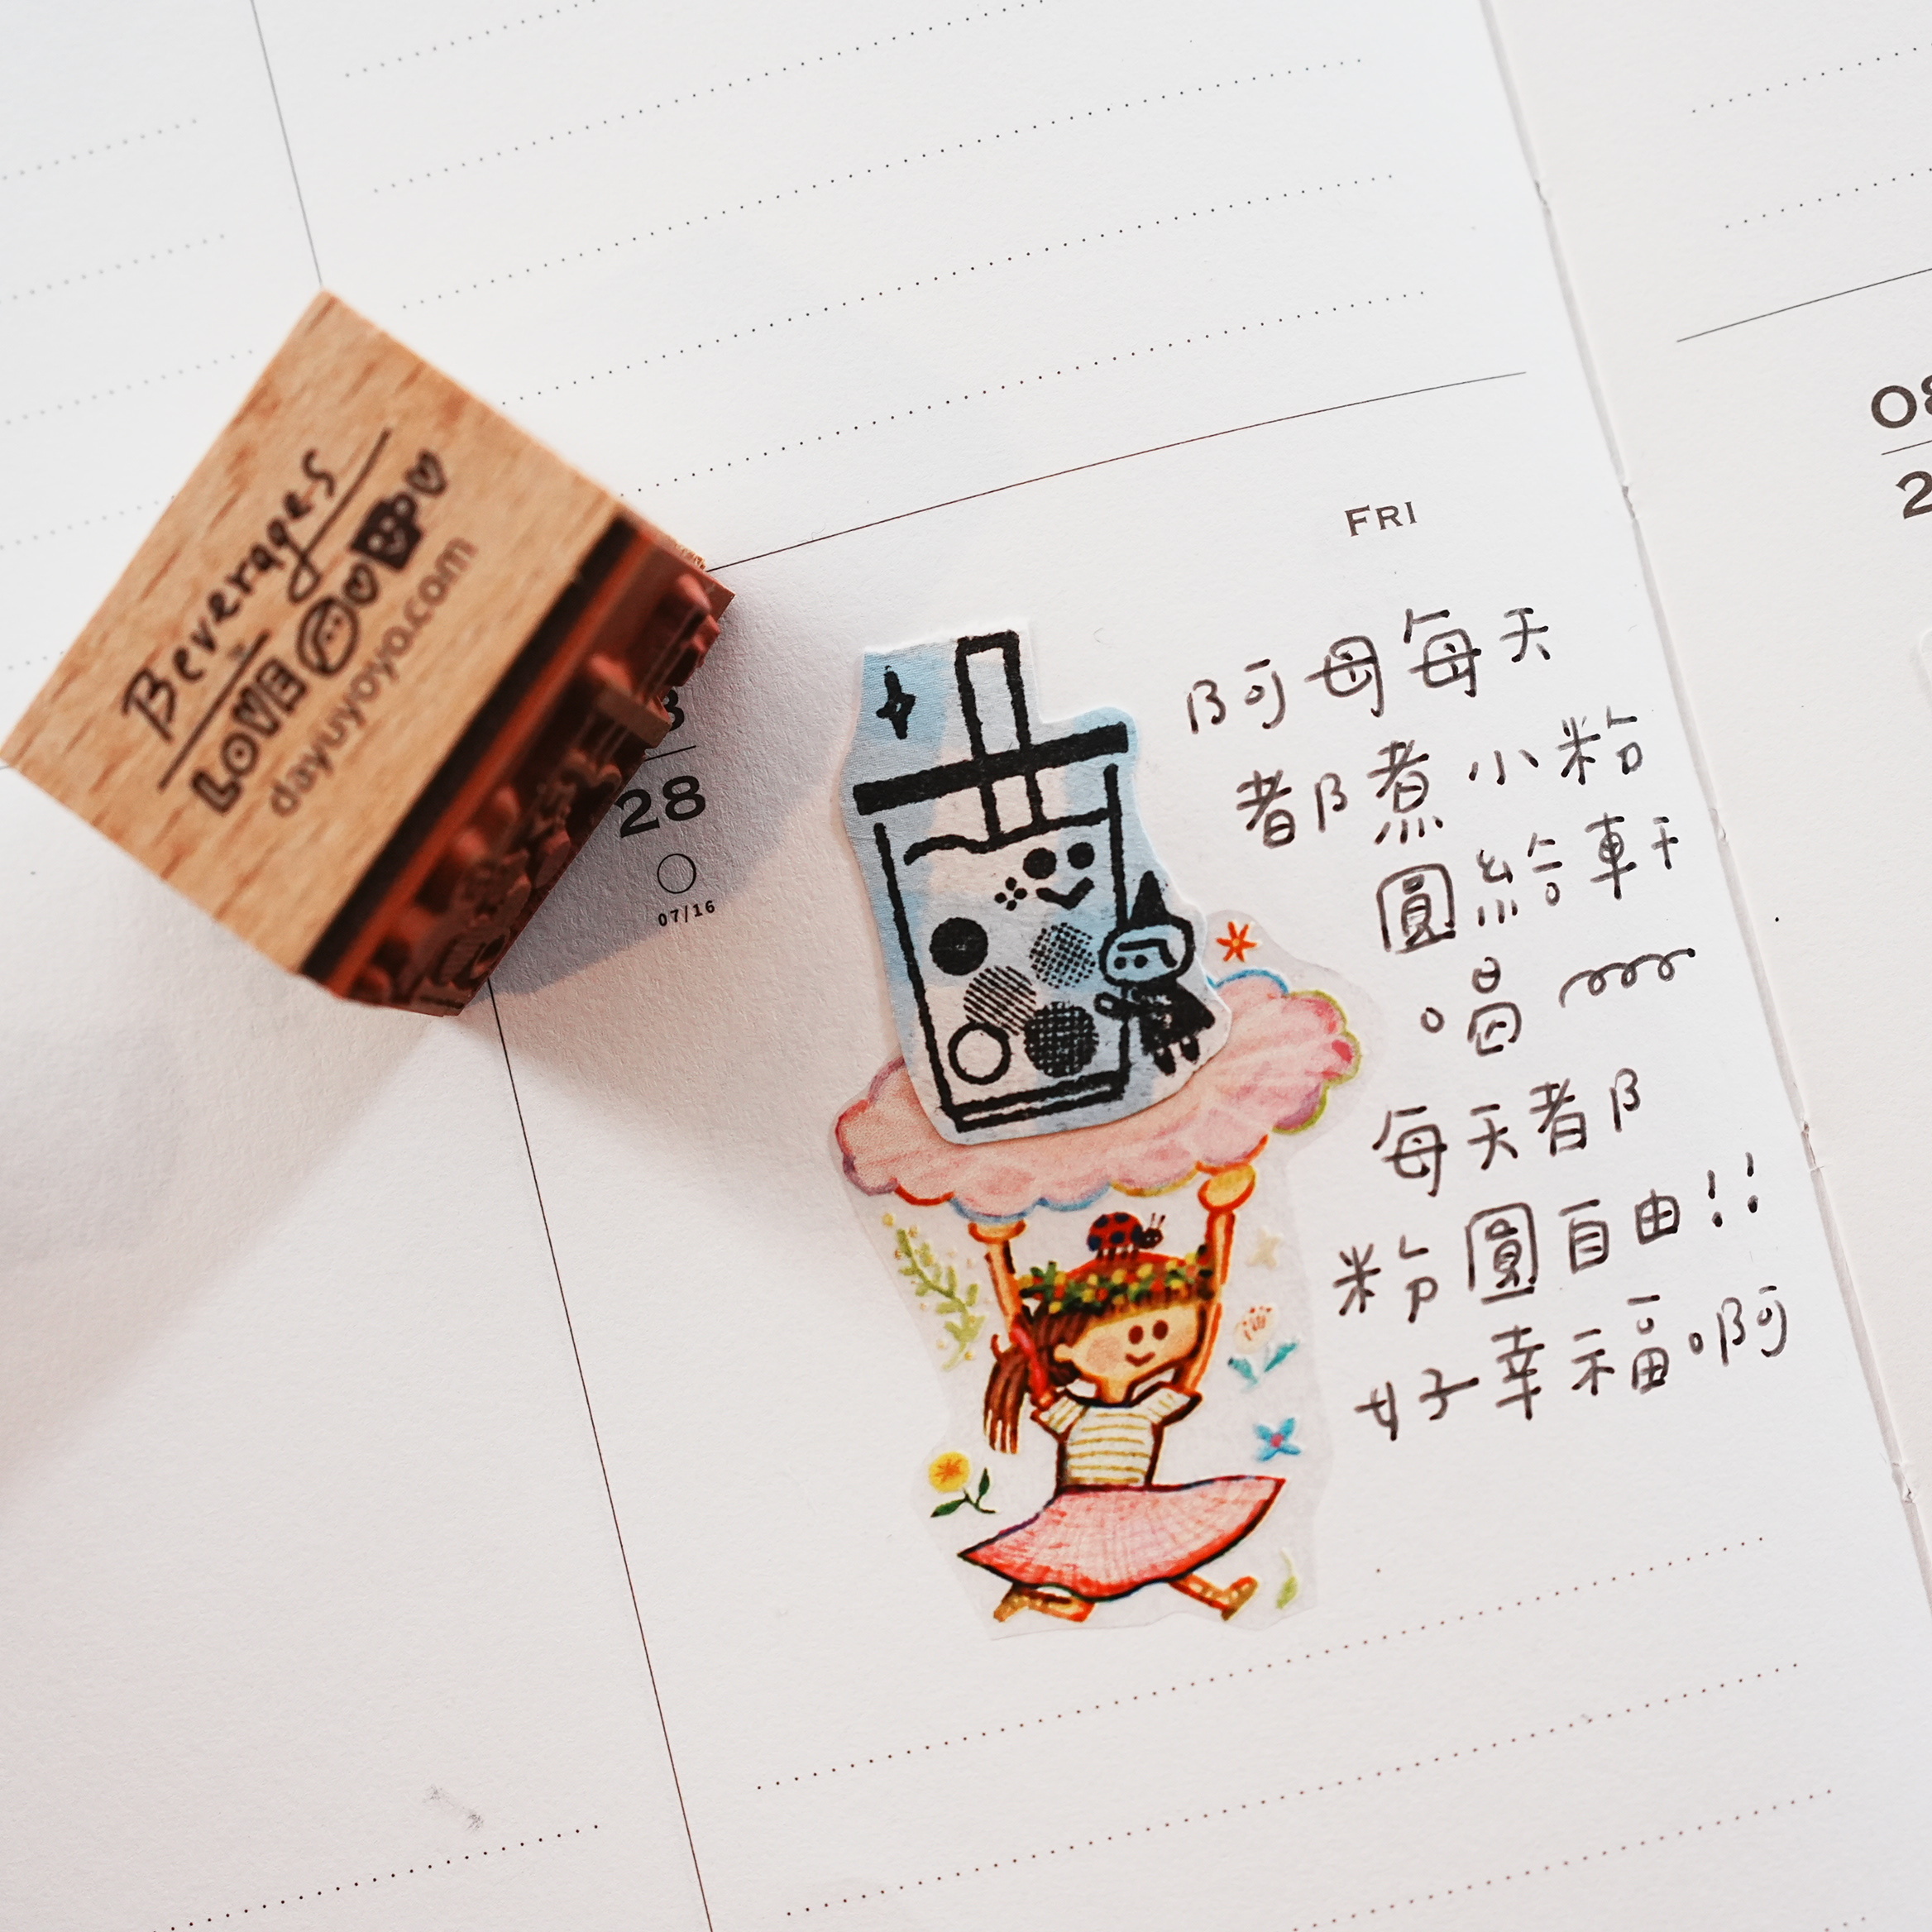 Beverages
LOVE
dayuyoyo.com
28
07/16
FRI
阿母每天
都煮小粉
圓給軒
喝
每天都
粉圓自由!!
好幸福啊